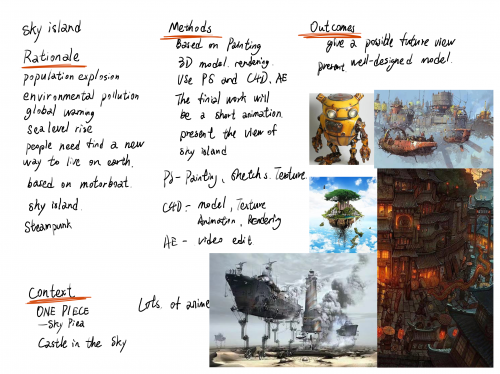 sky island
Rationale
population explosion
environmental pollution
global warning
sea level rise
people need find a new
way to live on earth.
based on motorboat.
sky island.
Steampunk
Context
ONE PIECE
—Sky Piea
Castle in the Sky
Methods
Based on Painting
3D model. rendering.
Use PS and C4D, AE
The finial work will
be a short animation.
present the view of
sky island
PS - Painting, Sketchs. Texture.
C4D - model, Texture
Animation, Rendering
AE - video edit
Lots. of anime
Outcomes
give a possible future view
present well-designed model.